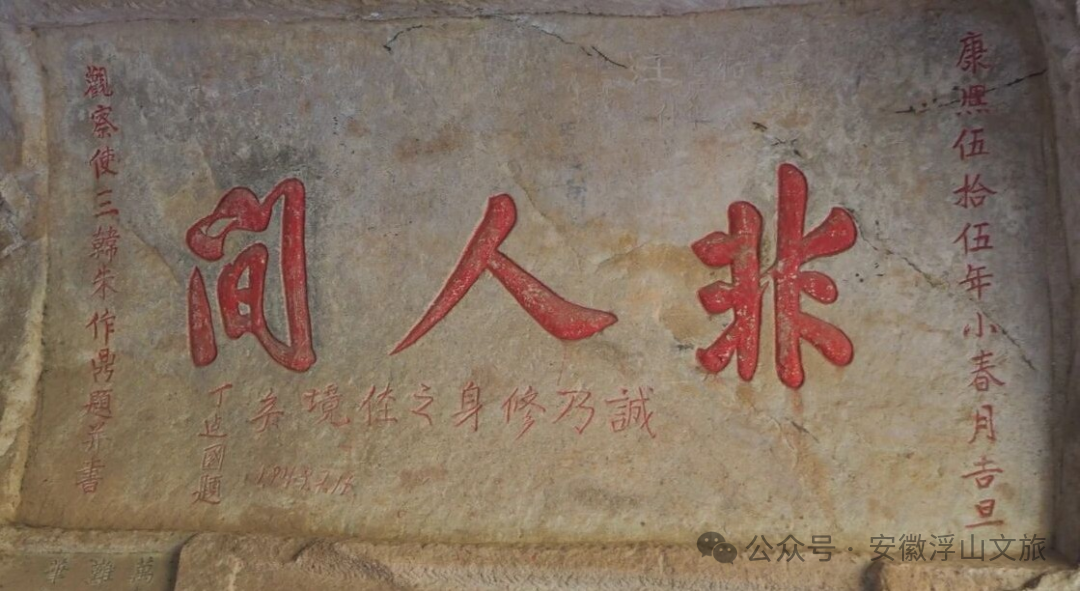 康熙伍拾伍年小春月吉旦
非人間
觀察使三韓朱作鼎題并書
誠乃修身之佳境
丁國題
公众号 · 安徽浮山文旅